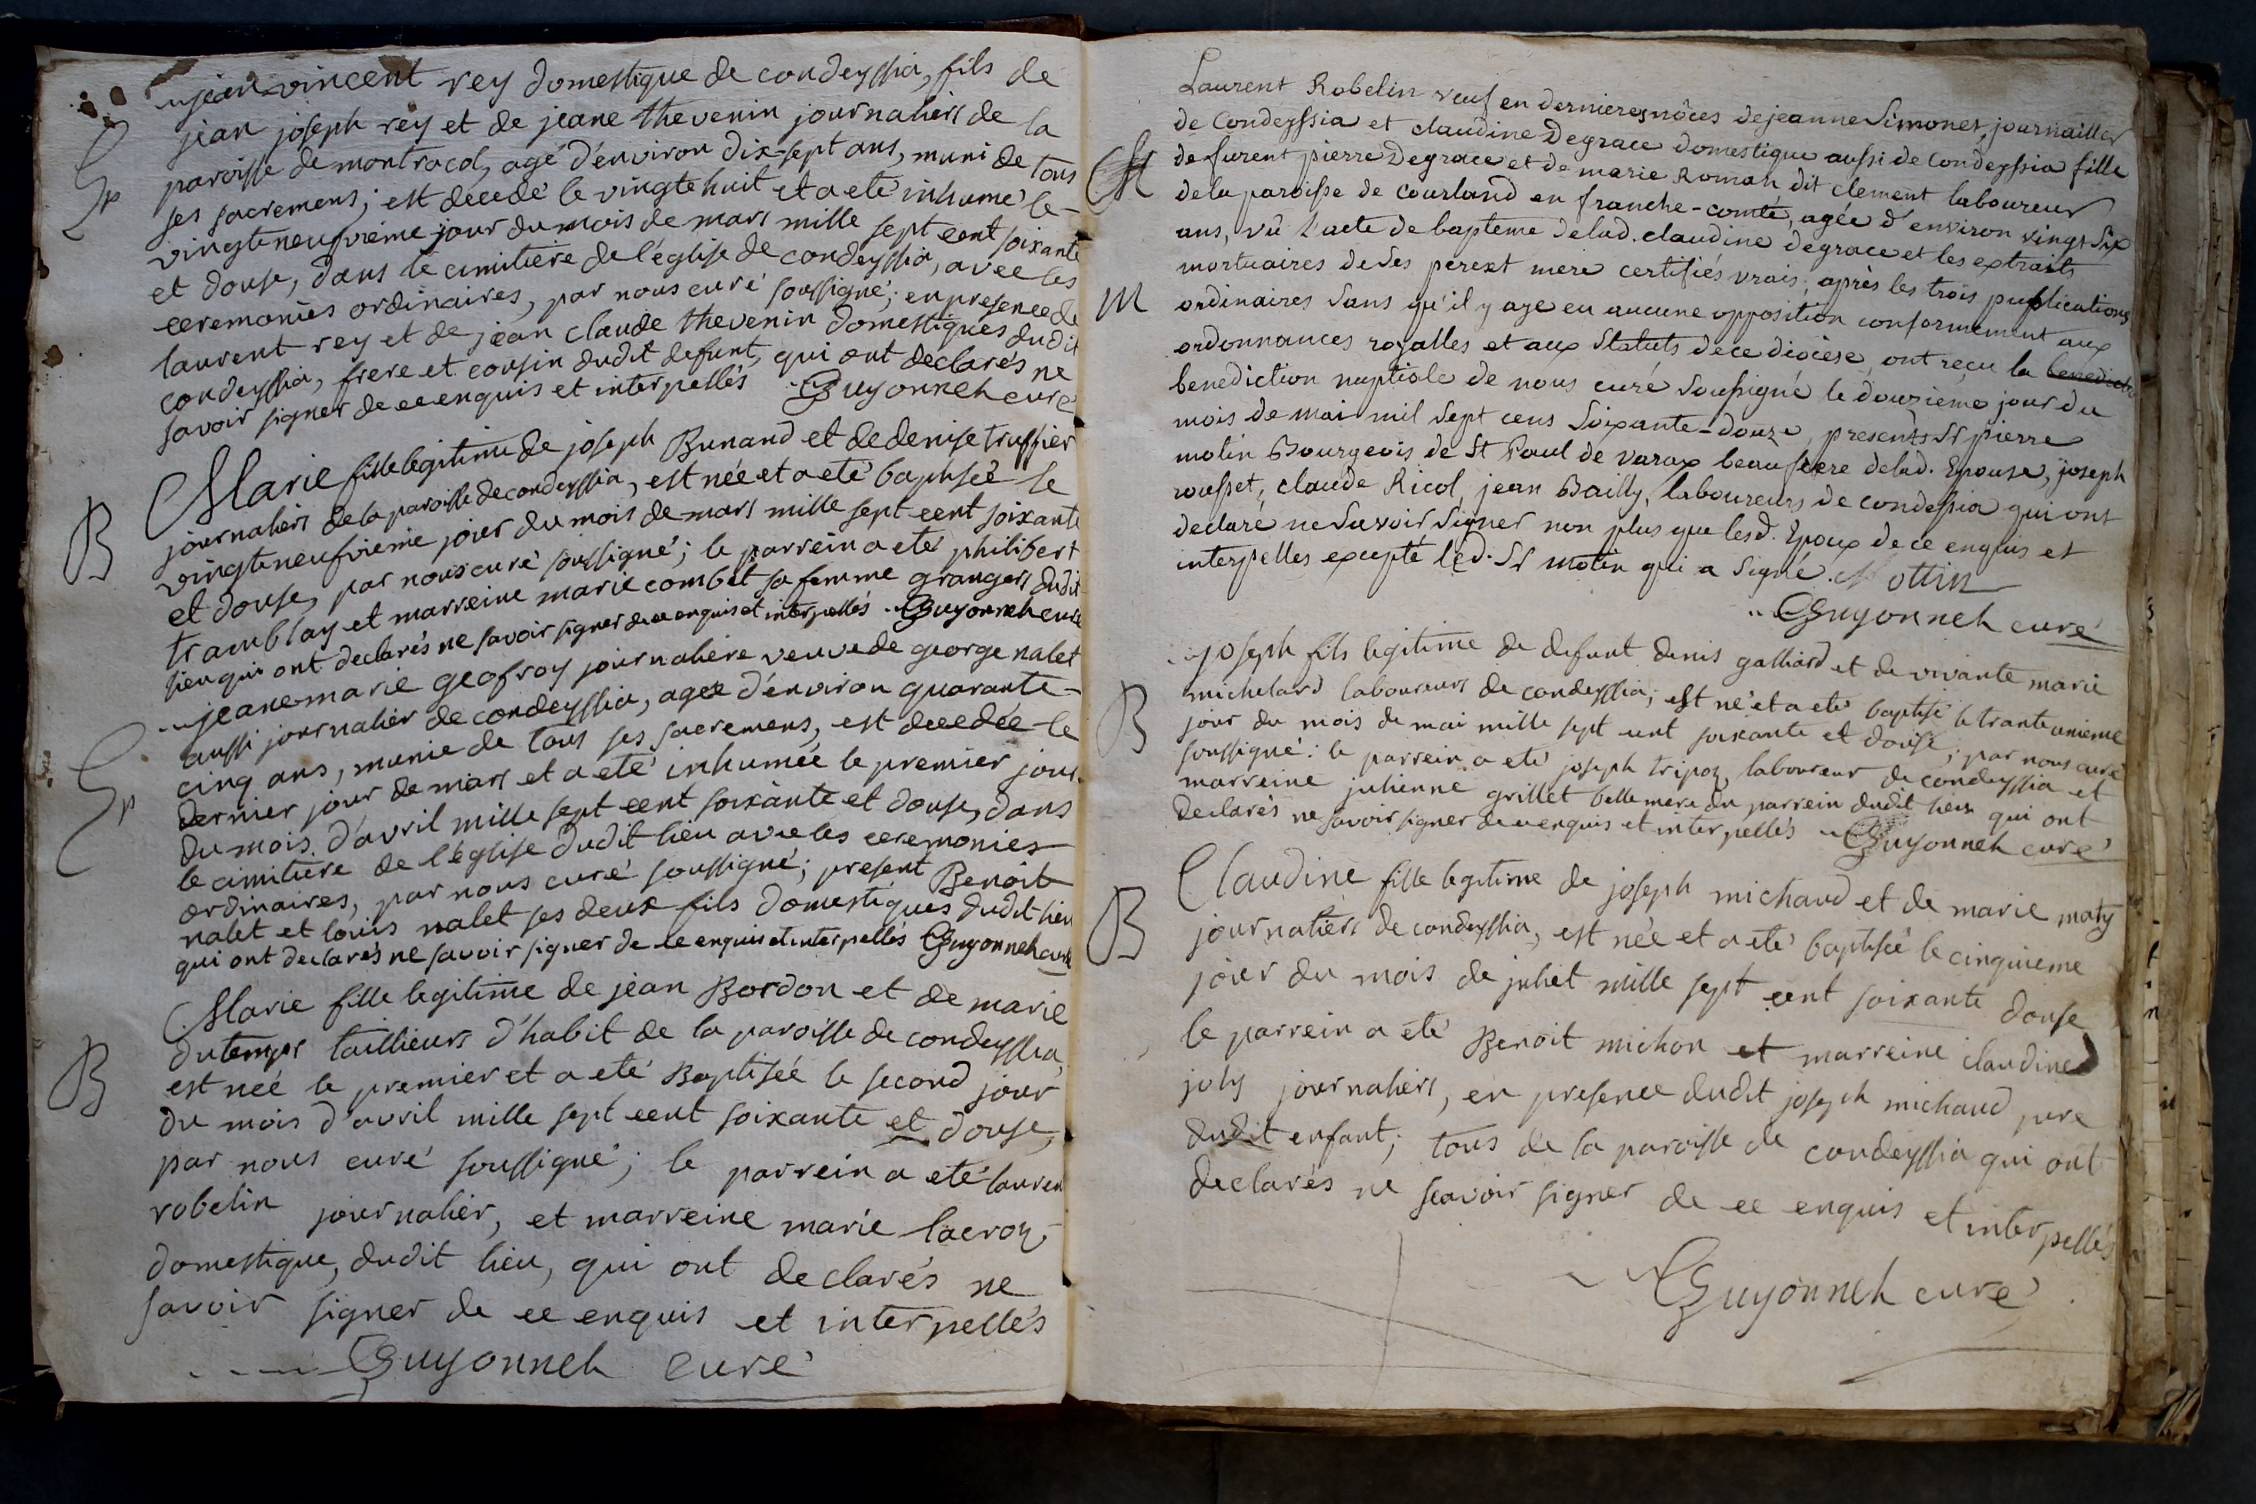 jean vincent rey domestique de condeyssia, fils de
jean joseph rey et de jeane thevenin journaliers de la
paroisse de montracol, agé d'environ dix-sept ans, muni de tous
ses sacremens; est decedé le vingte huit et a eté inhumé le
vingte neufvieme jour du mois de mars mille sept cent soixante
et douse, dans le cimitiere de l'église de condeyssia, avec les
ceremonies ordinaires, par nous curé soussigné; en presence de
laurent rey et de jean claude thevenin domestiques dudit
condeyssia, frere et cousin dudit defunt, qui ont declarés ne
savoir signer de ce enquis et interpellés Guyonneh curé
B
Marie fille legitime de joseph Bunand et de denise truffier
journaliers de la paroisse de condeyssia, est née et a eté baptisée le
vingte neufvieme jour du mois de mars mille sept cent soixante
et douse, par nous curé soussigné; le parrein a eté philibert
tramblay et marreine marie combet sa femme grangers dudit
lieu qui ont declarés ne savoir signer de ce enquis et interpellés Guyonneh curé
jeane marie geofroy journaliere veuve de george nalet
aussi journalier de condeyssia, agee d'environ quarante
cinq ans, munie de tous ses sacremens, est decedée le
dernier jour de mars et a eté inhumée le premier jour
du mois d'avril mille sept cent soixante et douse, dans
le cimitiere de l'église dudit lieu avec les ceremonies
ordinaires, par nous curé soussigné; present Benoit
nalet et louis nalet ses deux fils domestiques dudit lieu
qui ont declarés ne savoir signer de ce enquis et interpellés Guyonneh curé
B
Marie fille legitime de jean Bordon et de marie
dutemps taillieurs d'habit de la paroisse de condeyssia,
est née le premier et a eté Baptisée le second jour
du mois d'avril mille sept cent soixante et douse,
par nous curé soussigné; le parrein a eté lauren
robelin journalier, et marreine marie lacroix
domestique, dudit lieu, qui ont declarés ne
savoir signer de ce enquis et interpellés
Guyonneh curé
M
Laurent Robelin veuf en dernieres nôces de jeanne Simonet, journaillier
de Condeyssia et claudine Degrace domestique aussi de Condeyssia fille
de furent pierre Degrace et de marie Roman dit clement laboureur
de la paroisse de Courland en franche-comté, agée d'environ vingt Six
ans, vû l'acte de bapteme de lad. claudine degrace et les extraits
mortuaires de Ses pere et mere certifiés vrais, après les trois publications
ordinaires Sans qu'il y aye eu aucune opposition conformement aux
ordonnances royalles et aux Statuts de ce diocèse, ont reçu la benedicti
benediction nuptiale de nous curé Soussigné le douzieme jour du
mois de mai mil Sept cens Soixante-douze, presents Sr pierre
motin Bourgeois de St Paul de varax beaufrere de lad. Epouse, joseph
rousset, claude Ricol, jean Bailly, laboureurs de condessia qui ont
declaré ne Savoir Signer non plus que lesd. Epoux de ce enquis et
interpelles excepté led. Sr motin qui a Signé. Mottin
Guyonneh curé
B
joseph fils legitime de defunt denis galliard et de vivante marie
michelard laboureurs de condeyssia; est né et a eté baptisé le trante unieme
jour du mois de mai mille sept cent soixante et douse; par nous curé
soussigné: le parrein a eté joseph tripoz, laboureur de condeyssia et
marreine julienne grillet belle mere du parrein dudit lieu qui ont
declarés ne savoir signer de ce enquis et interpellés Guyonneh curé
B
Claudine fille legitime de joseph michaud et de marie maty
journaliers de condeyssia, est née et a eté baptisée le cinquieme
jour du mois de juliet mille sept cent soixante douse
le parrein a eté Benoit michon et marreine claudine
joly journaliers, en presence dudit joseph michaud pere
dudit enfant; tous de la paroisse de condeyssia qui ont
declarés ne scavoir signer de ce enquis et interpellés
Guyonneh curé